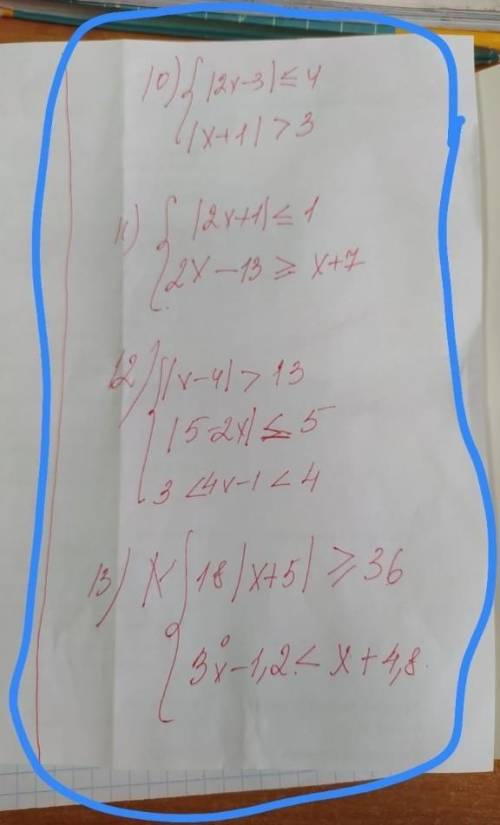 10) { |2x-3| ≤ 4
|x+1| > 3
11) { |2x+1| ≤ 1
2x - 13 ≥ x+7
12) { |x-4| > 13
|5-2x| ≤ 5
3 < 4x-1 < 4
13) { 18|x+5| ≥ 36
3x - 1,2 < x + 4,8